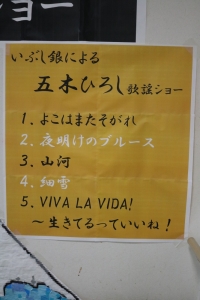 ョー
いぶし銀による
五木ひろし 歌謡ショー
1. よこはまたそがれ
2. 夜明けのブルース
3. 山河
4. 細雪
5. VIVA LA VIDA!
～生きてるっていいね！